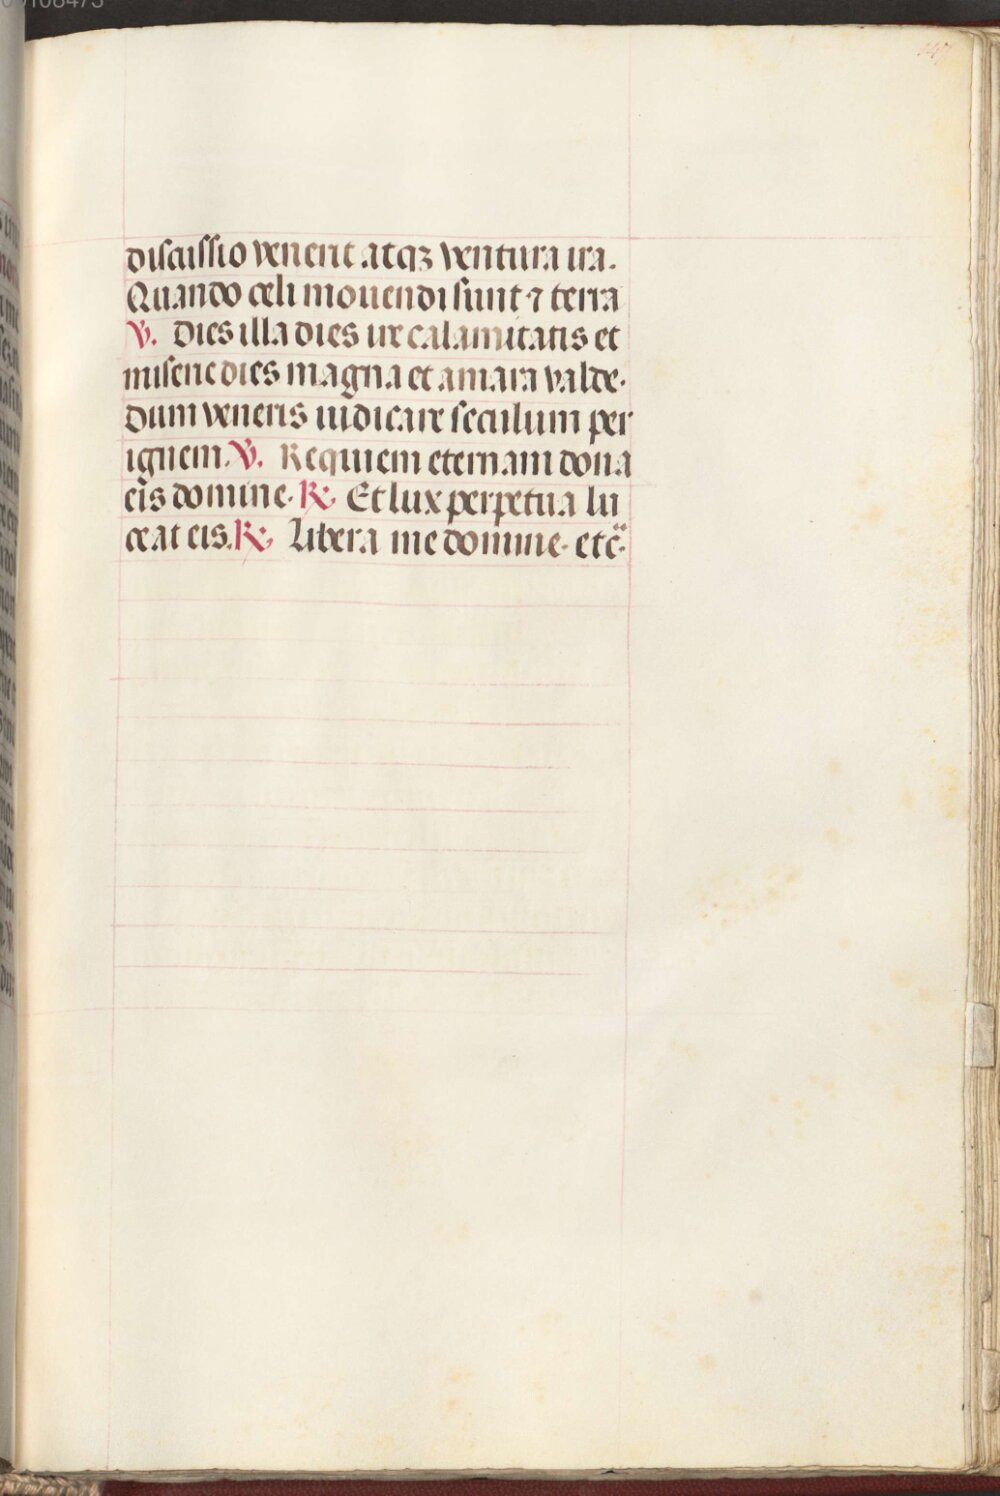 00108473
147
discussio venerit atqꝫ ventura ira.
Quando celi mouendi sunt ⁊ terra
℣. Dies illa dies ire calamitatis et
miserie dies magna et amara valde.
dum veneris iudicare seculum per
ignem. ℣. Requiem eternam dona
eis domine. ℟. Et lux perpetua lu
ceat eis. ℟. Libera me domine. etc̄.